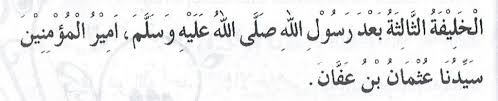 الْخَلِيْفَةُ الثَّالِثَةُ بَعْدَ رَسُوْلِ اللهِ صَلَّى اللهُ عَلَيْهِ وَسَلَّمَ، اَمِيْرُ الْمُؤْمِنِيْنَ
سَيِّدُنَا عُثْمَانُ بْنُ عَفَّانَ.